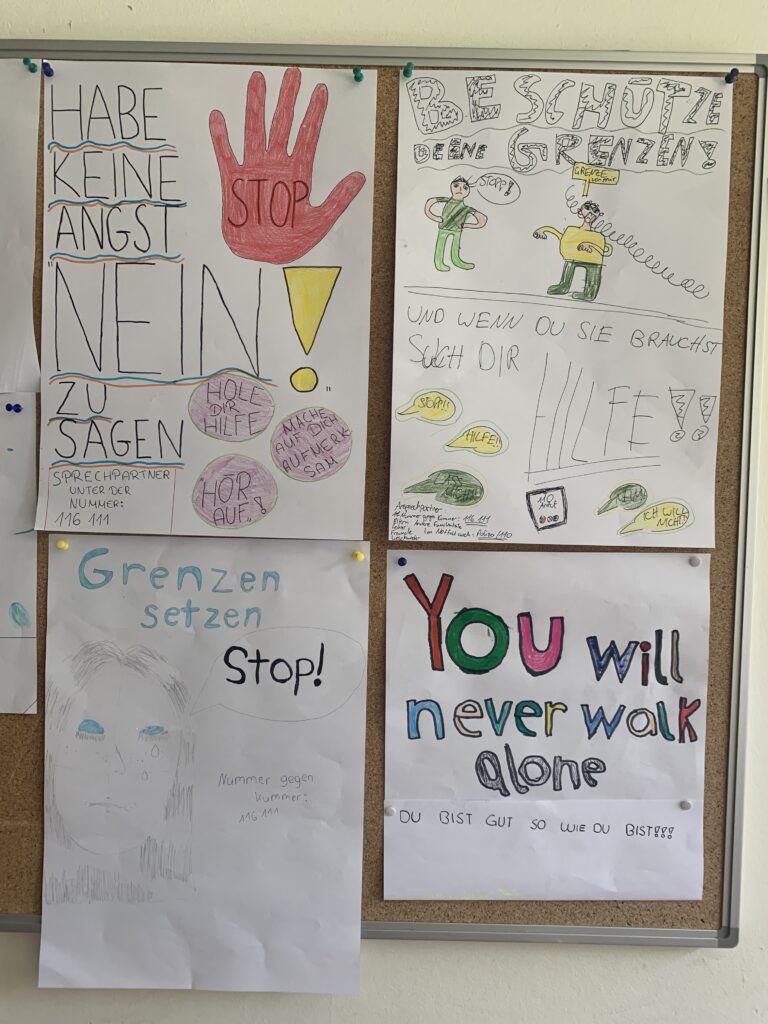 HABE
KEINE
ANGST
"NEIN!"
ZU
SAGEN
STOP
HOLE
DIR
HILFE
MACHE
AUF DICH
AUFMERK
SAM
"HÖR
AUF"!
SPRECHPARTNER
UNTER DER
NUMMER:
116 111
BESCHÜTZE
DEINE GRENZEN!
STOPP!
GRENZE
UND WENN DU SIE BRAUCHST
SUCH DIR
HILFE!!
STOP!!
HILFE!!
ICH WILL
NICHT!
110
Ansprechpartner
Nummer gegen Kummer: 116 111
Im Notfall auch: Polizei/110
Grenzen
setzen
Stop!
Nummer gegen
Kummer:
116 111
YOU will
never walk
alone
DU BIST GUT SO WIE DU BIST!!!